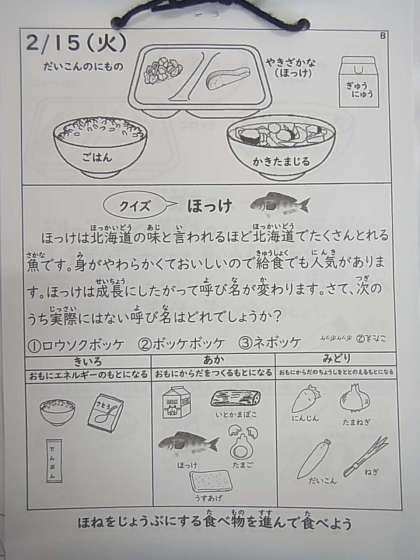 B
2/15(火)
だいこんのにもの
やきざかな
(ほっけ)
ぎゅう
にゅう
ごはん
かきたまじる
クイズ
ほっけ
ほっけは北海道の味と言われるほど北海道でたくさんとれる
魚です。身がやわらかくておいしいので給食でも人気がありま
す。ほっけは成長にしたがって呼び名が変わります。さて、次の
うち実際にはない呼び名はどれでしょうか?
①ロウソクボッケ ②ボッケボッケ ③ネボッケ
きいろ
おもにエネルギーのもとになる
あか
おもにからだをつくるもとになる
みどり
おもにからだのちょうしをととのえるもとになる
さとう
でんぷん
いとかまぼこ
ほっけ
たまご
うすあげ
にんじん
たまねぎ
だいこん
ねぎ
ほねをじょうぶにする食べ物を進んで食べよう